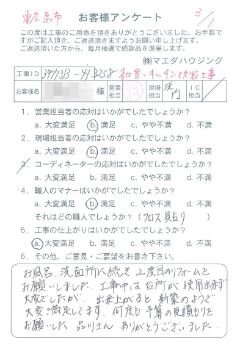 東広島市
お客様アンケート
3/
この度は工事のご用命を頂きありがとうございました。お手数で
すがご記入頂き、ご返送頂きますようお願い申し上げます。
ご返送頂いた方から、毎月抽選で感謝品を進呈します。
㈱マエダハウジング
工事ID
和室・キッチン改装工事
お客様名
様 営業担当
現場担当
IC担当
1. 営業担当者の応対はいかがでしたでしょうか?
a. 大変満足 b. 満足 c. やや不満 d. 不満
2. 現場担当者の応対はいかがでしたでしょうか?
a. 大変満足 b. 満足 c. やや不満 d. 不満
3. コーディネーターの応対はいかがでしたでしょうか?
a. 大変満足 b. 満足 c. やや不満 d. 不満
4. 職人のマナーはいかがでしたでしょうか?
a. 大変満足 b. 満足 c. やや不満 d. 不満
それはどの職人でしょうか? (クロス貼り)
5. 工事の仕上がりはいかがでしたでしょうか?
a. 大変満足 b. 満足 c. やや不満 d. 不満
6. その他、ご意見・ご要望をお聞かせ下さい。
お風呂、洗面所に続え 2度目のリフォームを
お願いしました。工事中は台所が使用出来ず
大変でしたが、出来上がると新築のようで
大変満足してます。何度も予算の見積りを
お願いした品川さんありがとうございました。